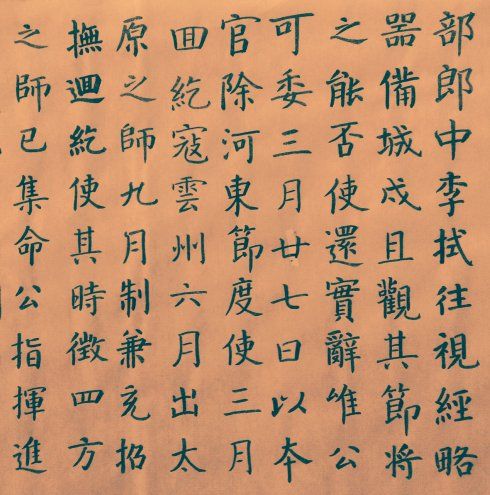 部郎中李拭往視經略
器備城戍且觀其節将
之能否使還實辭唯公
可委三月廿七日以本
官除河東節度使三月
囬紇寇雲州六月出太
原之師九月制兼充招
撫迴紇使其時徵四方
之師已集命公指揮進